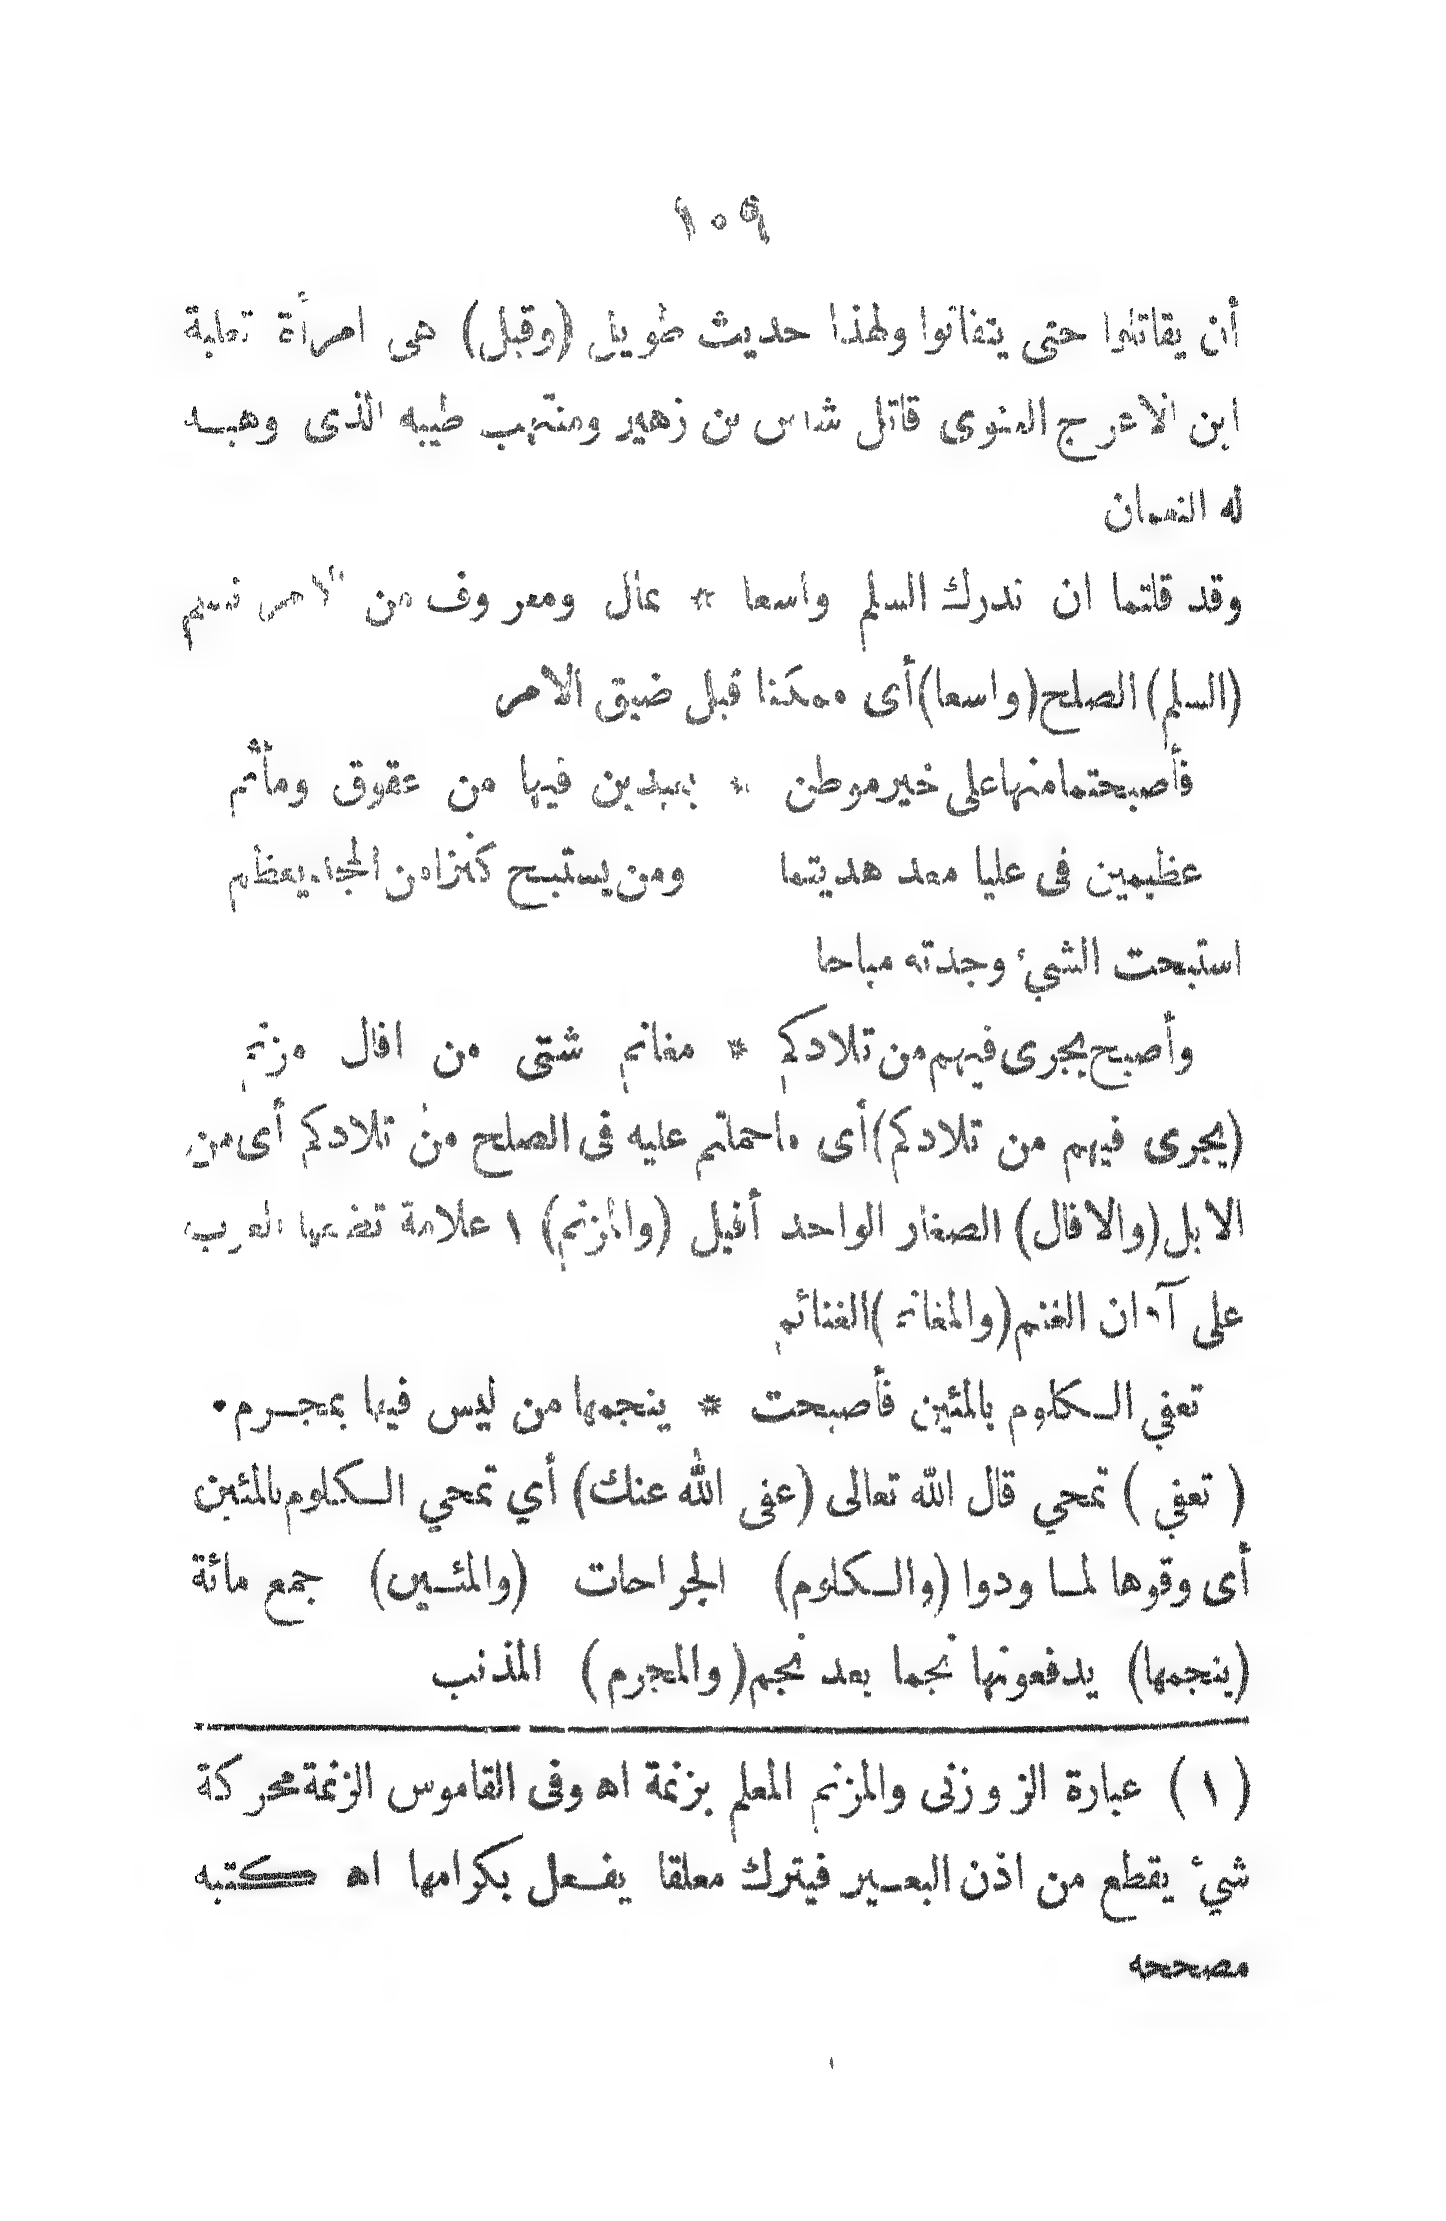 ١٠٩
أن يقاتلوا حتى يتفانوا ولهذا حديث طويل (وقيل) هى امرأة ثعلبة
ابن الاعرج الغنوى قاتل شاس بن زهير ومنتهب طيبه الذى وهبـه
له النعمان
وقد قلتما ان ندرك السلم واسعا * بمال ومعروف من الامر نسلم
(السلم) الصلح (واسعا) أى ممكنا قبل ضيق الامر
فأصبحتما منها على خير موطن * بعيدين فيها من عقوق ومأثم
عظيمين فى عليا معد هديتما ومن يستبـح كنزا من المجد يعظم
استبحت الشىء وجدته مباحا
وأصبح يجرى فيهم من تلادكم * مغانم شتى من افال مزنم
(يجرى فيهم من تلادكم) أى ماحملتم عليه فى الصلح من تلادكم أى من
الابل (والافال) الصغار الواحد أفيل (والمزنم) ١ علامة تضعها العرب
على آذان الغنم (والمغانم) الغنائم
تعفي الـكلوم بالمئين فأصبحت * ينجمها من ليس فيها بمجـرم
( تعفي ) تمحي قال الله تعالى (عفى الله عنك) أي تمحي الـكلوم بالمئين
أى وقوها لمـا ودوا (والـكلوم) الجراحات (والمئـين) جمع مائة
(ينجمها) يدفعونها نجما بعد نجم (والمجرم) المذنب
(١) عبارة الزوزنى والمزنم المعلم بزنمة اه وفى القاموس الزنمة محركة
شيء يقطع من اذن البعـير فيترك معلقا يفـعل بكرامها اه كتبه
مصححه